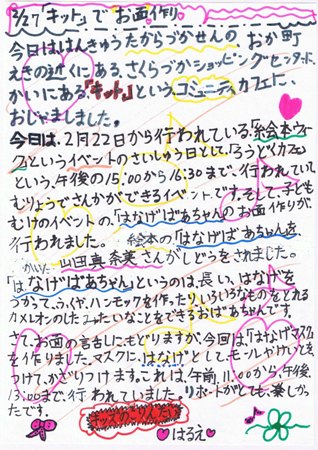 2/27「キット」で お面作り
今日ははんきゅうたからづかせんの おか町
えきの近くにある、さくらづかショッピングセンター2
かいにある『キット』という、コミュニティカフェに、
おじゃましました。
今日は、2月22日から行われている、「絵本ウィ
ーク」というイベントのさいしゅう日として、「ろうどくカフェ」
という、午後の15:00から16:30まで、行われていて
むりょうでさんかができるイベントです。そして、子ども
むけのイベントの、「はなげばあちゃんのお面作り」が、
行われました。 絵本の「はなげばあちゃん」を
かいた 山田真奈美さんがしどうをされました。
「はなげばあちゃん」というのは、長い、はなげを
つかって、ふくや、ハンモックを作ったり、いろいろなものをとれる
カメレオンのした みたいなことをできるおばあちゃんです。
さて、お面の言舌しにもどりますが、今回は「はなげマスク」
を作りました。マスクに、はなげとして、モールやけいとを
つけて、かざりつけます。これは、午前、11:00から、午後、
13:00まで、行われていました。リポートがとても、楽しか
ったです。
キッズのこりんだ!!
はるえ